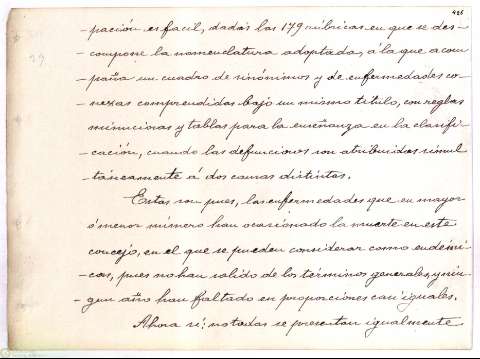 426
-pación es facil, dadas las 179 rúbricas en que se des-
-compone la nomenclatura adoptada, á la que acom
-paña un cuadro de sinónimos y de enfermedades co-
-nexas comprendidas bajo un mismo titulo, con reglas
minuciosas y tablas para la enseñanza en la clasifi-
-cación, cuando las defunciones son atribuidas simul
-táneamente á dos causas distintas.
Estas son pues, las enfermedades que en mayor
ó menor número han ocasionado la muerte en este
concejo, en el que se pueden considerar como endémi-
-cas, pues no han salido de los términos generales, y nin-
-gun año han faltado en proporciones casi iguales.
Ahora si: no todas se presentan igualmente